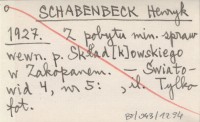 SCHABENBECK Henryk
1927. Z pobytu min. spraw
wewn. p. Skład[k]owskiego
w Zakopanem. - Świato-
wid 4, nr 5: , il. Tylko
fot.